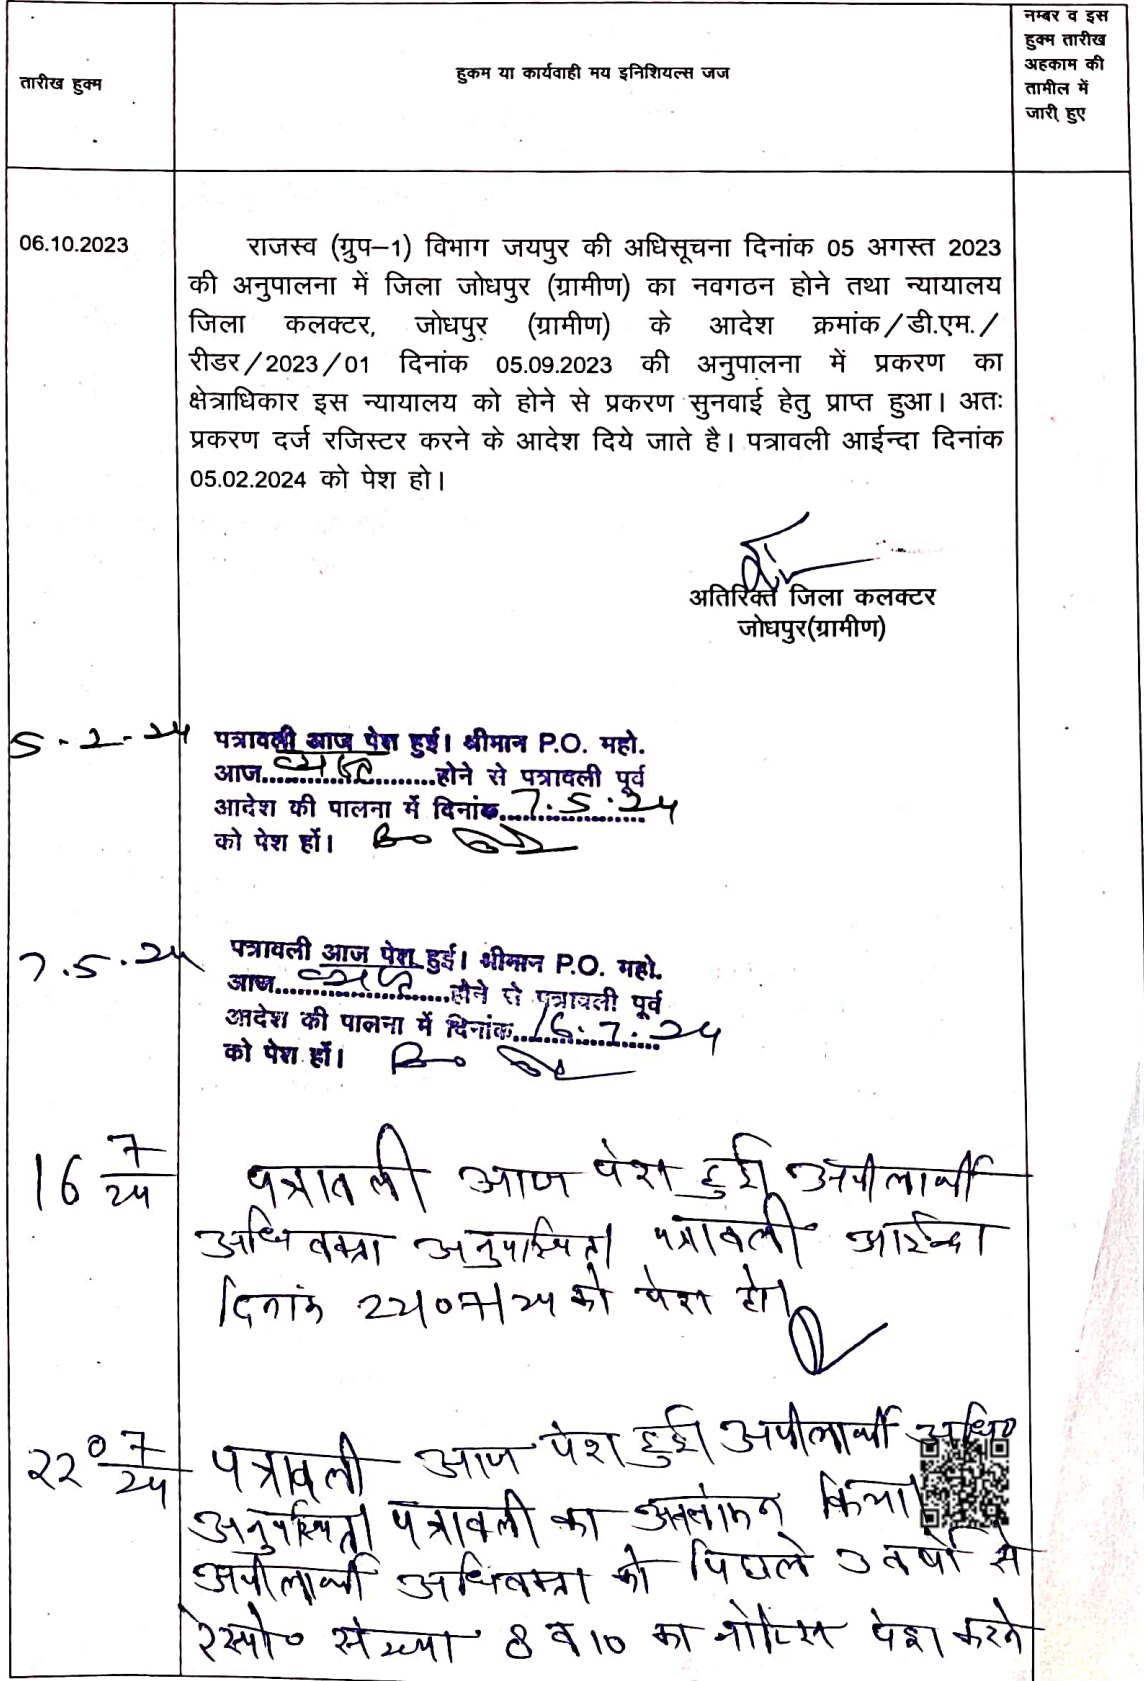 तारीख हुक्म
हुकम या कार्यवाही मय इनिशियल्स जज
नम्बर व इस
हुक्म तारीख
अहकाम की
तामील में
जारी हुए
06.10.2023
राजस्व (ग्रुप–1) विभाग जयपुर की अधिसूचना दिनांक 05 अगस्त 2023
की अनुपालना में जिला जोधपुर (ग्रामीण) का नवगठन होने तथा न्यायालय
जिला कलक्टर, जोधपुर (ग्रामीण) के आदेश क्रमांक/डी.एम./
रीडर/2023/01 दिनांक 05.09.2023 की अनुपालना में प्रकरण का
क्षेत्राधिकार इस न्यायालय को होने से प्रकरण सुनवाई हेतु प्राप्त हुआ। अतः
प्रकरण दर्ज रजिस्टर करने के आदेश दिये जाते है। पत्रावली आईन्दा दिनांक
05.02.2024 को पेश हो।
अतिरिक्त जिला कलक्टर
जोधपुर(ग्रामीण)
5-2-24
पत्रावली आज पेश हुई। श्रीमान P.O. महो.
आज व्यस्त होने से पत्रावली पूर्व
आदेश की पालना में दिनांक 7.5.24
को पेश हों।
7.5.24
पत्रावली आज पेश हुई। श्रीमान P.O. महो.
आज व्यस्त होने से पत्रावली पूर्व
आदेश की पालना में दिनांक 16.7.24
को पेश हों।
16 7/24
पत्रावली आज पेश हुई। अपीलार्थी
अधिवक्ता अनुपस्थित। पत्रावली आईन्दा
दिनांक 22/07/24 को पेश हो।
22 07/24
पत्रावली आज पेश हुई। अपीलार्थी अधि०
अनुपस्थित। पत्रावली का अवलोकन किया।
अपीलार्थी अधिवक्ता को पिछले 3 वर्षो से
रेस्पो० संख्या 8 व 10 का नोटिस पेश करने